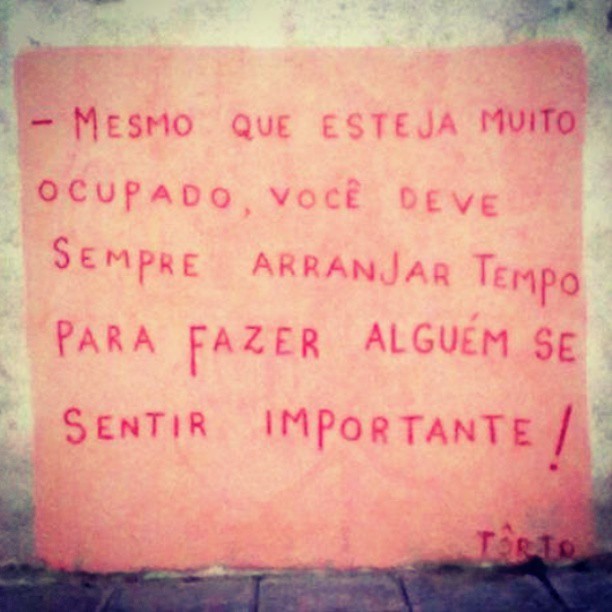 - MESMO QUE ESTEJA MUITO
OCUPADO, VOCÊ DEVE
SEMPRE ARRANJAR TEMPO
PARA FAZER ALGUÉM SE
SENTIR IMPORTANTE!
TÔRTO